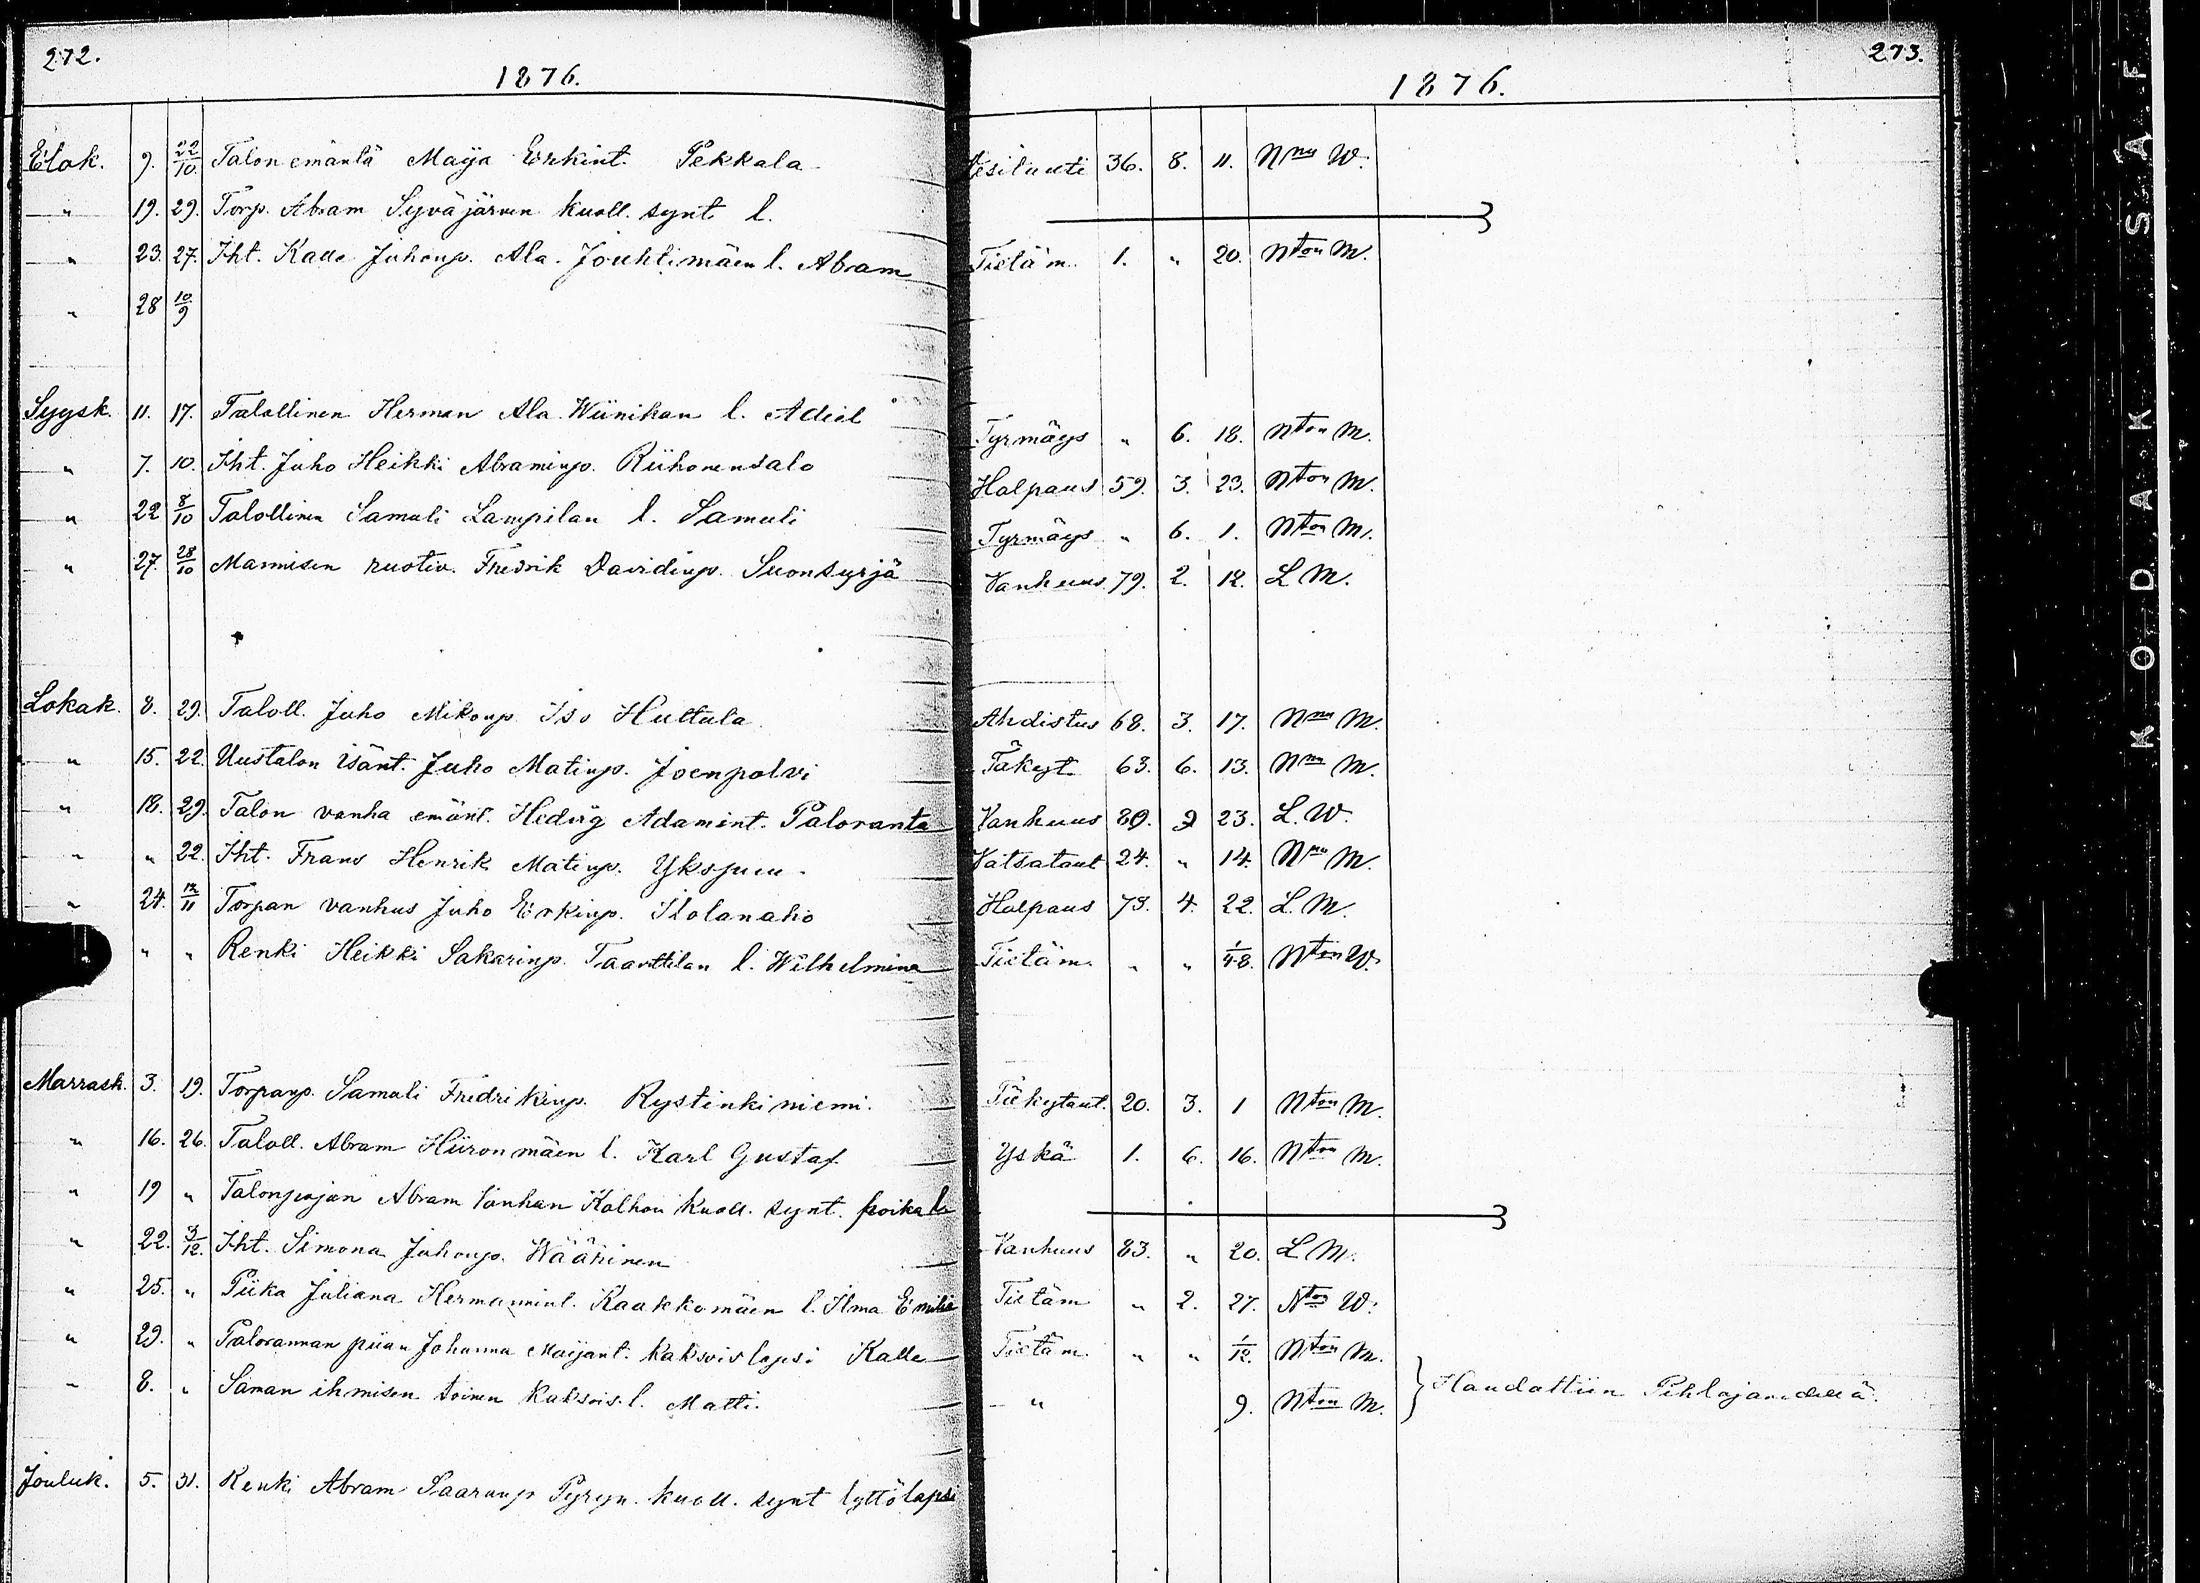 272.
1876.
273.
1876.
Elok. 9. 22/10. Talon emäntä Maija Erkint. Pekkala Vesitauti 36. 8. 11. Nnu W.
" 19. 29. Torp. Abram Syväjärven kuoll. synt. l.
" 23. 27. Iht. Kalle Juhonp. Ala-Jouhtimäen l. Abram Tietäm. 1. " 20. Nton M.
" 28 10/9
Syysk. 11. 17. Talollinen Herman Ala Wiinikan l. Adiel Tyrmäys " 6. 18. Nton M.
" 7. 10. Iht. Juho Heikki Abraminp. Riihonensalo Halpaus 59. 3. 23. Nton M.
" 22 8/10 Talollinen Samuli Lampilan l. Samuli Tyrmäys " 6. 1. Nton M.
" 27. 28/10 Mannisen ruotiv. Fredrik Davidinp. Suonsyrjä Vanhuus 79. 2. 12. L M.
Lokak. 8. 29. Taloll. Juho Mikonp. Iso Huttula Ahdistus 68. 3. 17. Nnu M.
" 15. 22. Uustalon isänt. Juho Matinp. Joenpolvi Täkyt. 63. 6. 13. Nnu M.
" 18. 29. Talon vanha emänt. Hedvig Adamint. Paloranta Vanhuus 89. 9 23. L. W.
" " 22. Iht. Frans Henrik Matinp. Yksjuu. Vatsataut 24. " 14. Nnu M.
" 24. 12/11 Torpan vanhus Juho Erkinp. Ilolanaho Halpaus 73. 4. 22. L. M.
" " " Renki Heikki Sakarinp. Taarttilan l. Wilhelmina Tietäm. " " 1/48. Nton W.
Marrask. 3. 19. Torpanp. Samuli Fredrikinp. Rystinkiniemi. Täkytaut. 20. 3. 1 Nton M.
" 16. 26. Taloll. Abram Hiironmäen l. Karl Gustaf Yskä 1. 6. 16. Nton M.
" 19 " Talonpojan Abram Vanhan Kolhon kuoll. synt. poika l.
" 22. 3/12. Iht. Simona Juhonp. Wäätinen Vanhuus 83. " 20. L M.
" 25. " Piika Juliana Hermannint. Kaakkomäen l. Ilma Emilia Tietäm " 2. 27. Nton W.
" 29. " Palorannan piian Johanna Maijant. kaksoislapsi Kalle Tietäm. " " 1/12. Nton M.
" 8. " Saman ihmisen toinen kaksois.l. Matti. " 9. Nton M.
Haudattiin Pihlajavedellä.
Jouluk. 5. 31. Renki Abram Pyryn kuoll. synt tyttölapsi
KODAK SAF